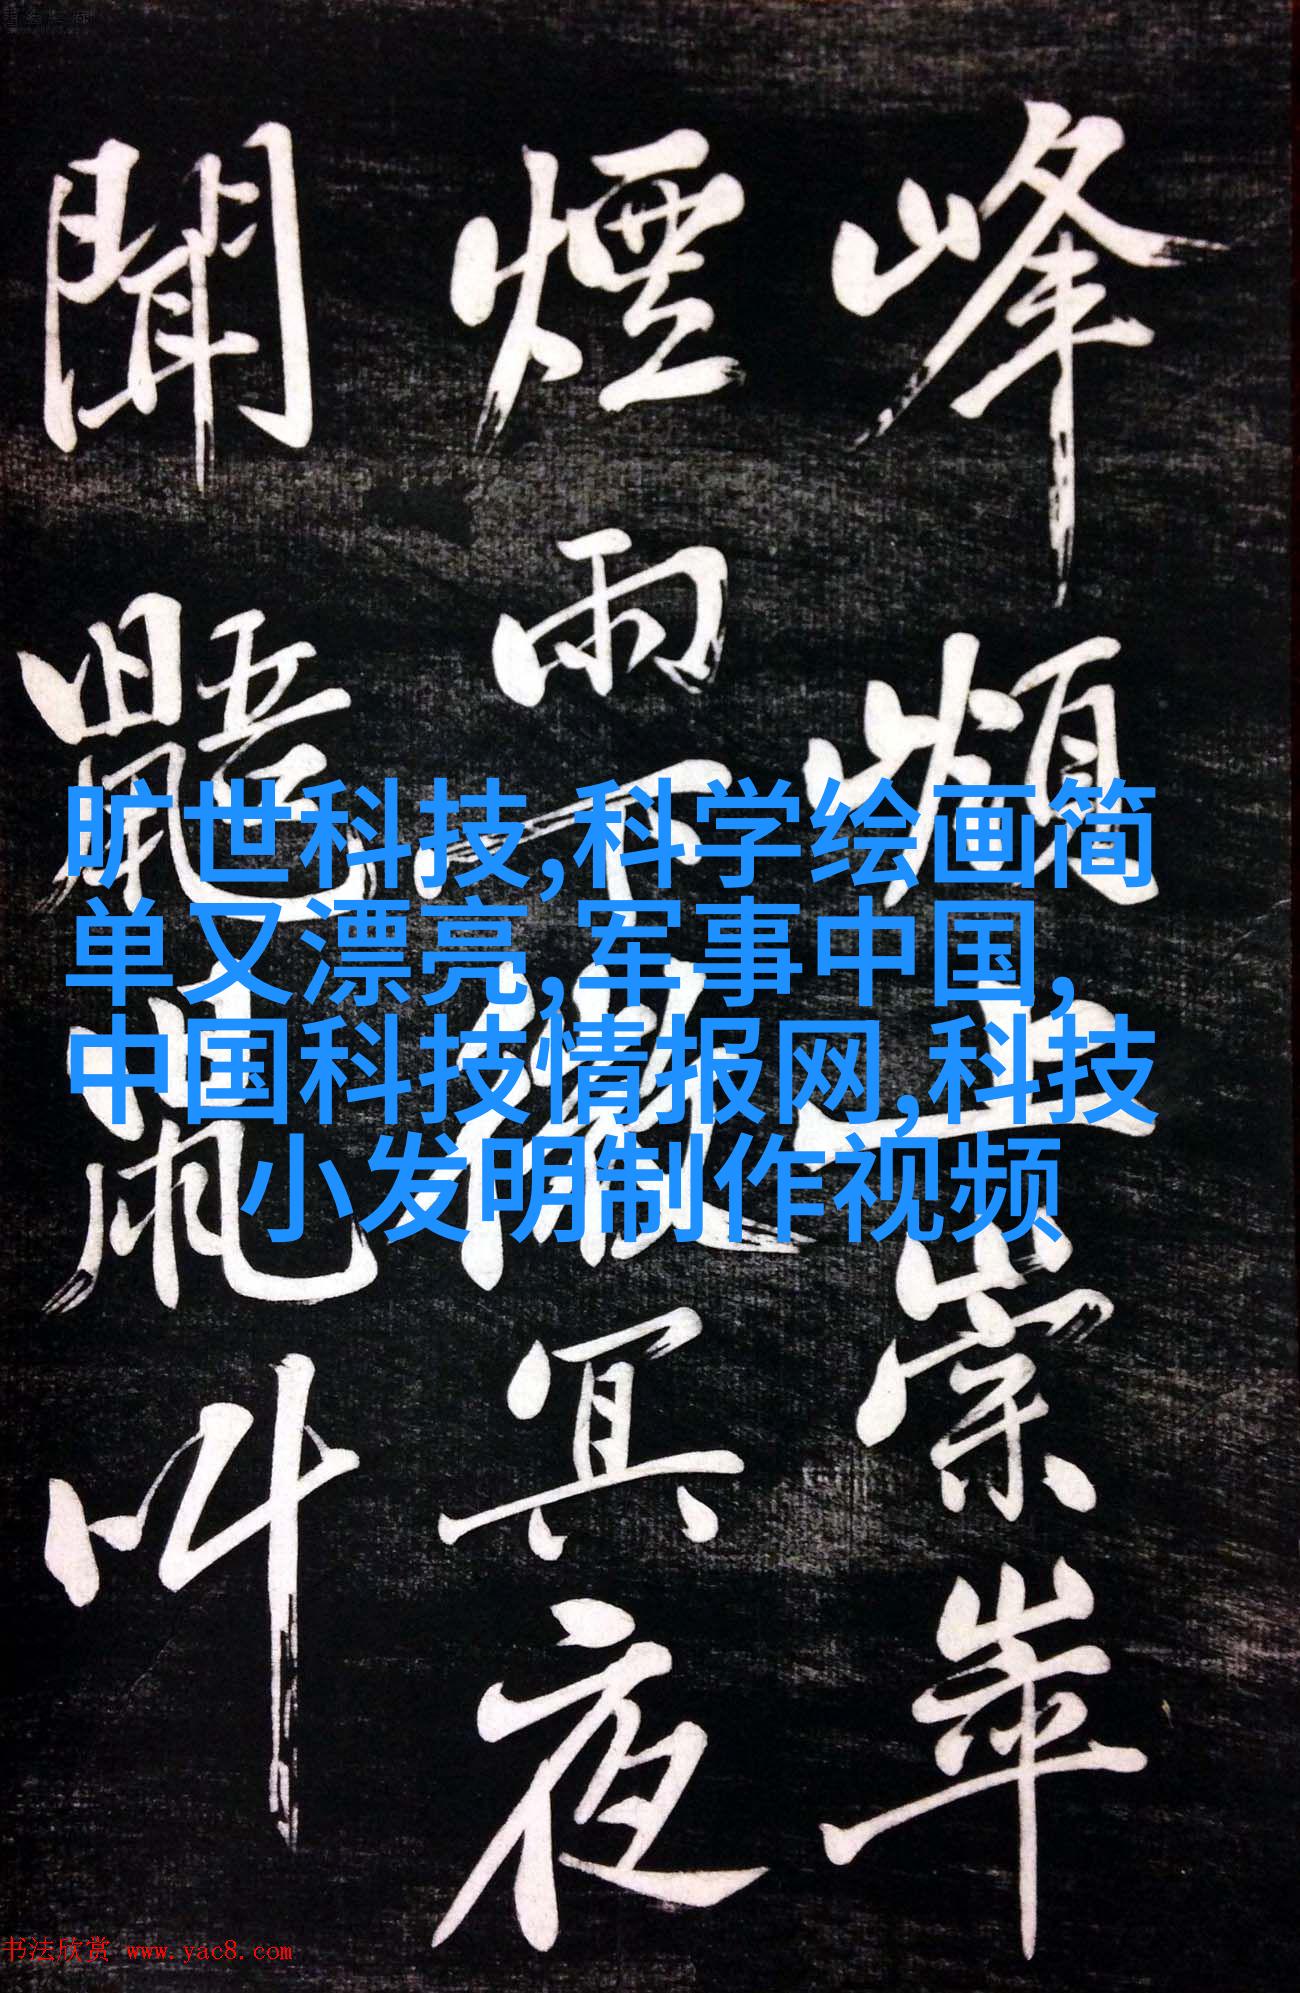 峰上崇崒
煙雨下微冥夜
聞鼯鼠叫
旷世科技,科学绘画简
单又漂亮,军事中国,
中国科技情报网,科技
小发明制作视频
书法欣赏 www.yac8.com